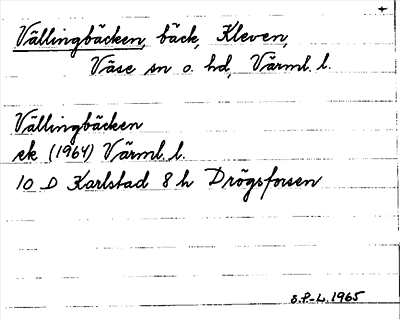 Vällingbäcken, bäck, Kleven,
Väse sn o. hd, Värml. l.
Vällingbäcken
ek (1964) Värml. l.
10 D Karlstad 8 h Drögsforsen
S.P-L. 1965